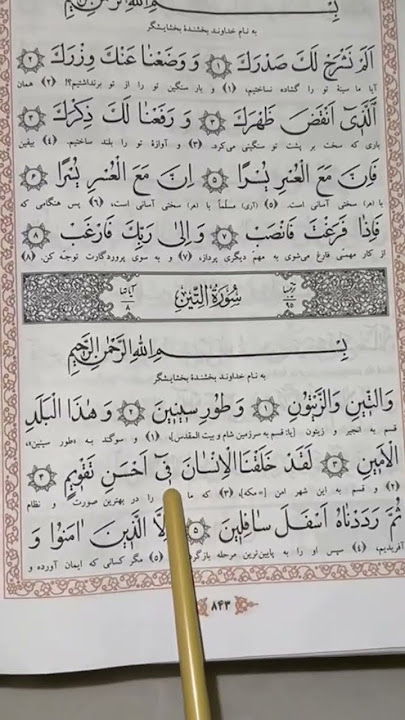 بِسْمِ اللهِ الرَّحْمٰنِ الرَّحِيمِ
به نام خداوند بخشندهٔ بخشایشگر
اَلَمْ نَشْرَحْ لَكَ صَدْرَكَ ۱ وَ وَضَعْنٰا عَنْكَ وِزْرَكَ ۲
آیا ما سینهٔ تو را گشاده نساختیم، (۱) و بار سنگین تو را از تو برنداشتیم؟! (۲) همان
اَلَّذٖى اَنْقَضَ ظَهْرَكَ ۳ وَ رَفَعْنٰا لَكَ ذِكْرَكَ ۴
باری که سخت بر پشت تو سنگینی می‌کرد. (۳) و آوازهٔ تو را بلند ساختیم. (۴) بیقین
فَاِنَّ مَعَ الْعُسْرِ يُسْرًا ۵ اِنَّ مَعَ الْعُسْرِ يُسْرًا ۶
با (هر) سختی آسانی است. (۵) (آری) مسلّماً با (هر) سختی آسانی است، (۶) پس هنگامی که
فَاِذٰا فَرَغْتَ فَانْصَبْ ۷ وَ اِلىٰ رَبِّكَ فَارْغَبْ ۸
از کار مهمّی فارغ می‌شوی به مهم دیگری پرداز، (۷) و به سوی پروردگارت توجّه کن. (۸)
ترتیبها ۹۵ سُورَةُ التِّينِ آیاتها ۸
بِسْمِ اللهِ الرَّحْمٰنِ الرَّحِيمِ
به نام خداوند بخشندهٔ بخشایشگر
وَالتّٖينِ وَالزَّيْتُونِ ۱ وَ طُورِ سٖينٖينَ ۲ وَ هٰذَا الْبَلَدِ
قسم به انجیر و زیتون [یا: قسم به سرزمین شام و بیت المقدس]، (۱) و سوگند به «طور سینین»،
الْاَمٖينِ ۳ لَقَدْ خَلَقْنَا الْاِنْسٰانَ فٖى اَحْسَنِ تَقْوٖيمٍ ۴
(۲) و قسم به این شهر امن [= مکه]، (۳) که ما را در بهترین صورت و نظام
ثُمَّ رَدَدْنٰاهُ اَسْفَلَ سٰافِلٖينَ ۵ اِلَّا الَّذٖينَ اٰمَنُوا وَ
آفریدیم، (۴) سپس او را به پایین‌ترین مرحله (۵) مگر کسانی که ایمان آورده و
۸۴۳